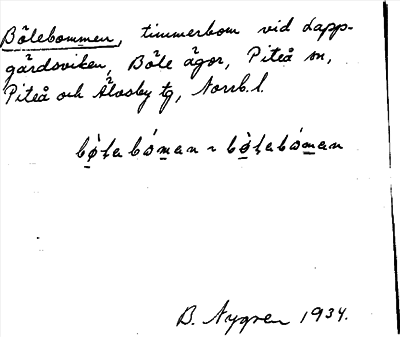 Bölebommen, timmerbom vid Lapp-
gårdsviken, Böle ägor, Piteå sn,
Piteå och Älvsby tg, Norrb. l.
bø̀ḷabóman ~ bø̀ḷabóman
B. Nygren 1934.